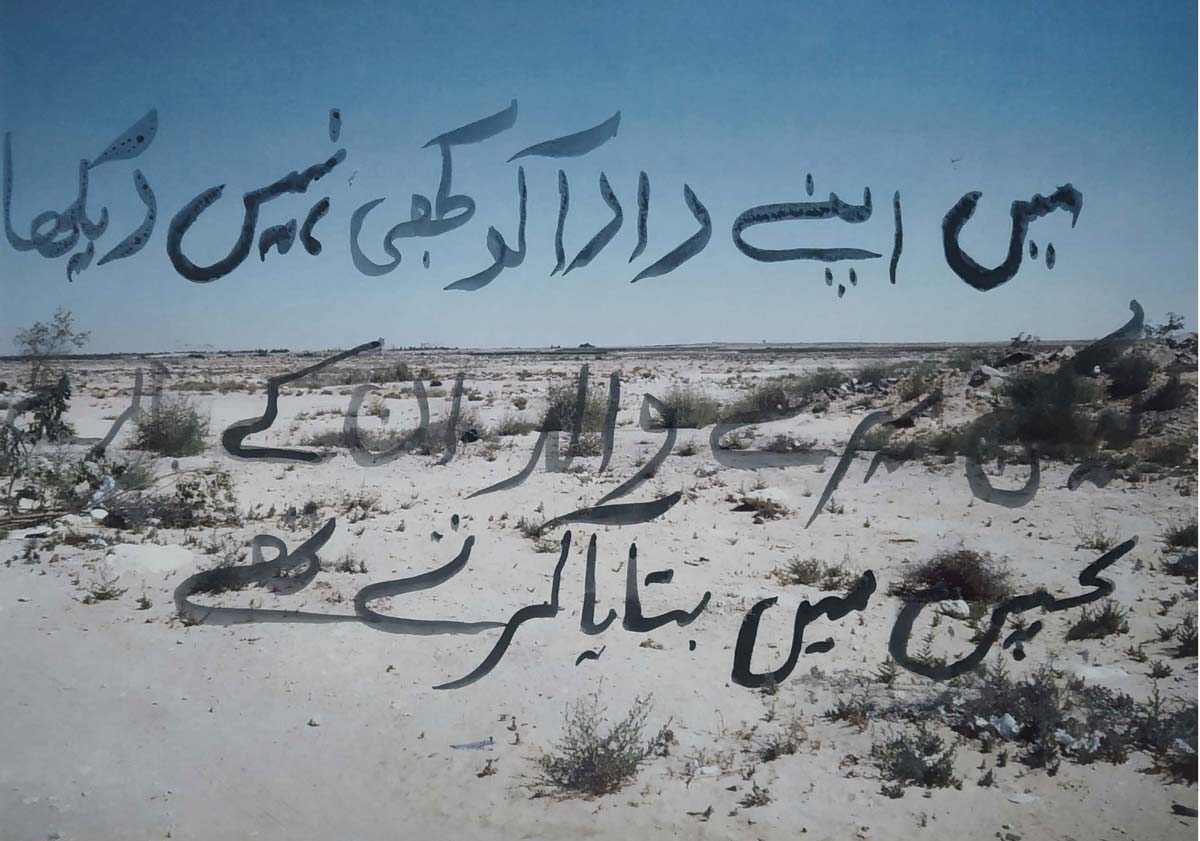 میں اپنے دادا کو کبھی نہیں دیکھا
لیکن میرے والد ان کے
بچپن میں بتایا کرتے تھے